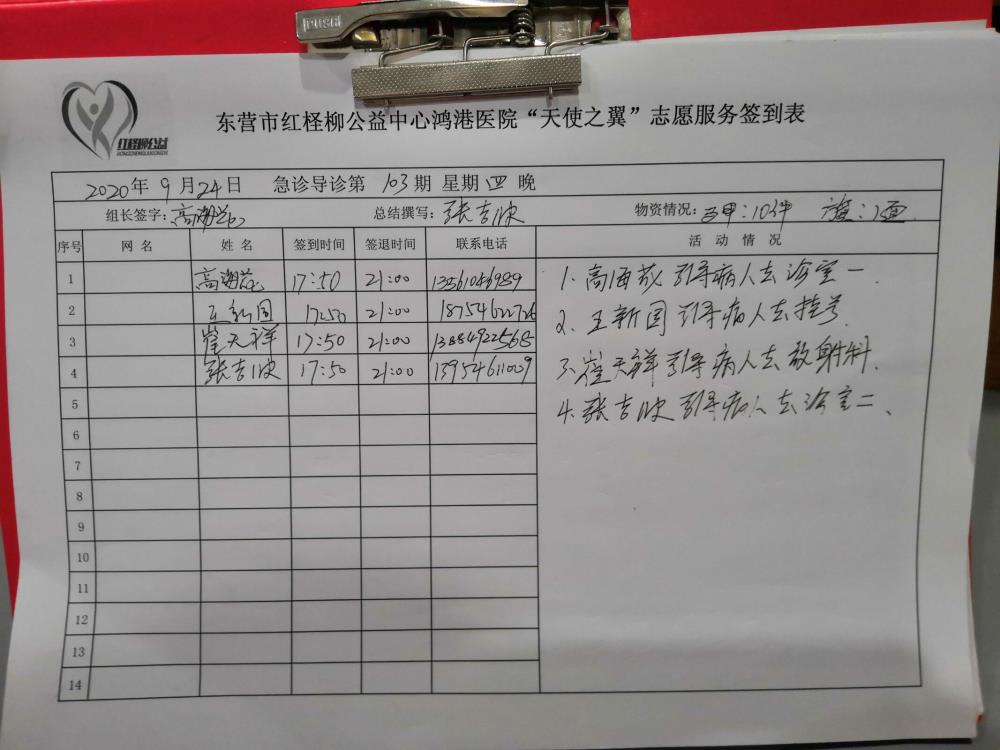 PUSH
红柽柳公益
HONGCHENGLIUGONGYI
东营市红柽柳公益中心鸿港医院“天使之翼”志愿服务签到表
2020年9月24日 急诊导诊第103期 星期四晚
组长签字:高海花 总结撰写:张吉波 物资情况:马甲:10件 旗:1面
序号 网名 姓名 签到时间 签退时间 联系电话 活动情况
1 高海花 17:50 21:00 13561046989
2 王新国 17:50 21:00 18754622726
3 崔天祥 17:50 21:00 13884922568
4 张吉波 17:50 21:00 13954611009
5
6
7
8
9
10
11
12
13
14
1.高海花引导病人去诊室一.
2、王新国引导病人去挂号.
3、崔天祥引导病人去放射科.
4.张吉波引导病人去诊室二、